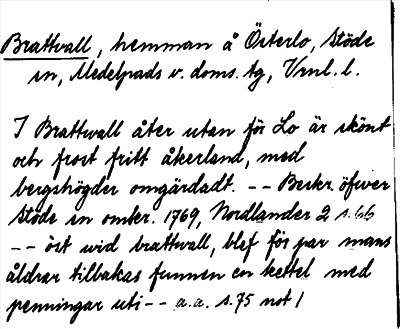 Brattvall, hemman å Österlo, Stöde
sn, Medelpads v. doms. tg, Vrnl. l.
I Brattwall åter utan för Lo är skönt
och frost fritt åkerland, med
bergshögder omgärdadt. -- Beskr. öfwer
Stöde sn omkr. 1769, Nordlander 2 s. 66
-- ört wid brattwall, blef för par mans
åldrar tilbakas funnen en kettel med
penningar uti -- a.a. s. 75 not 1